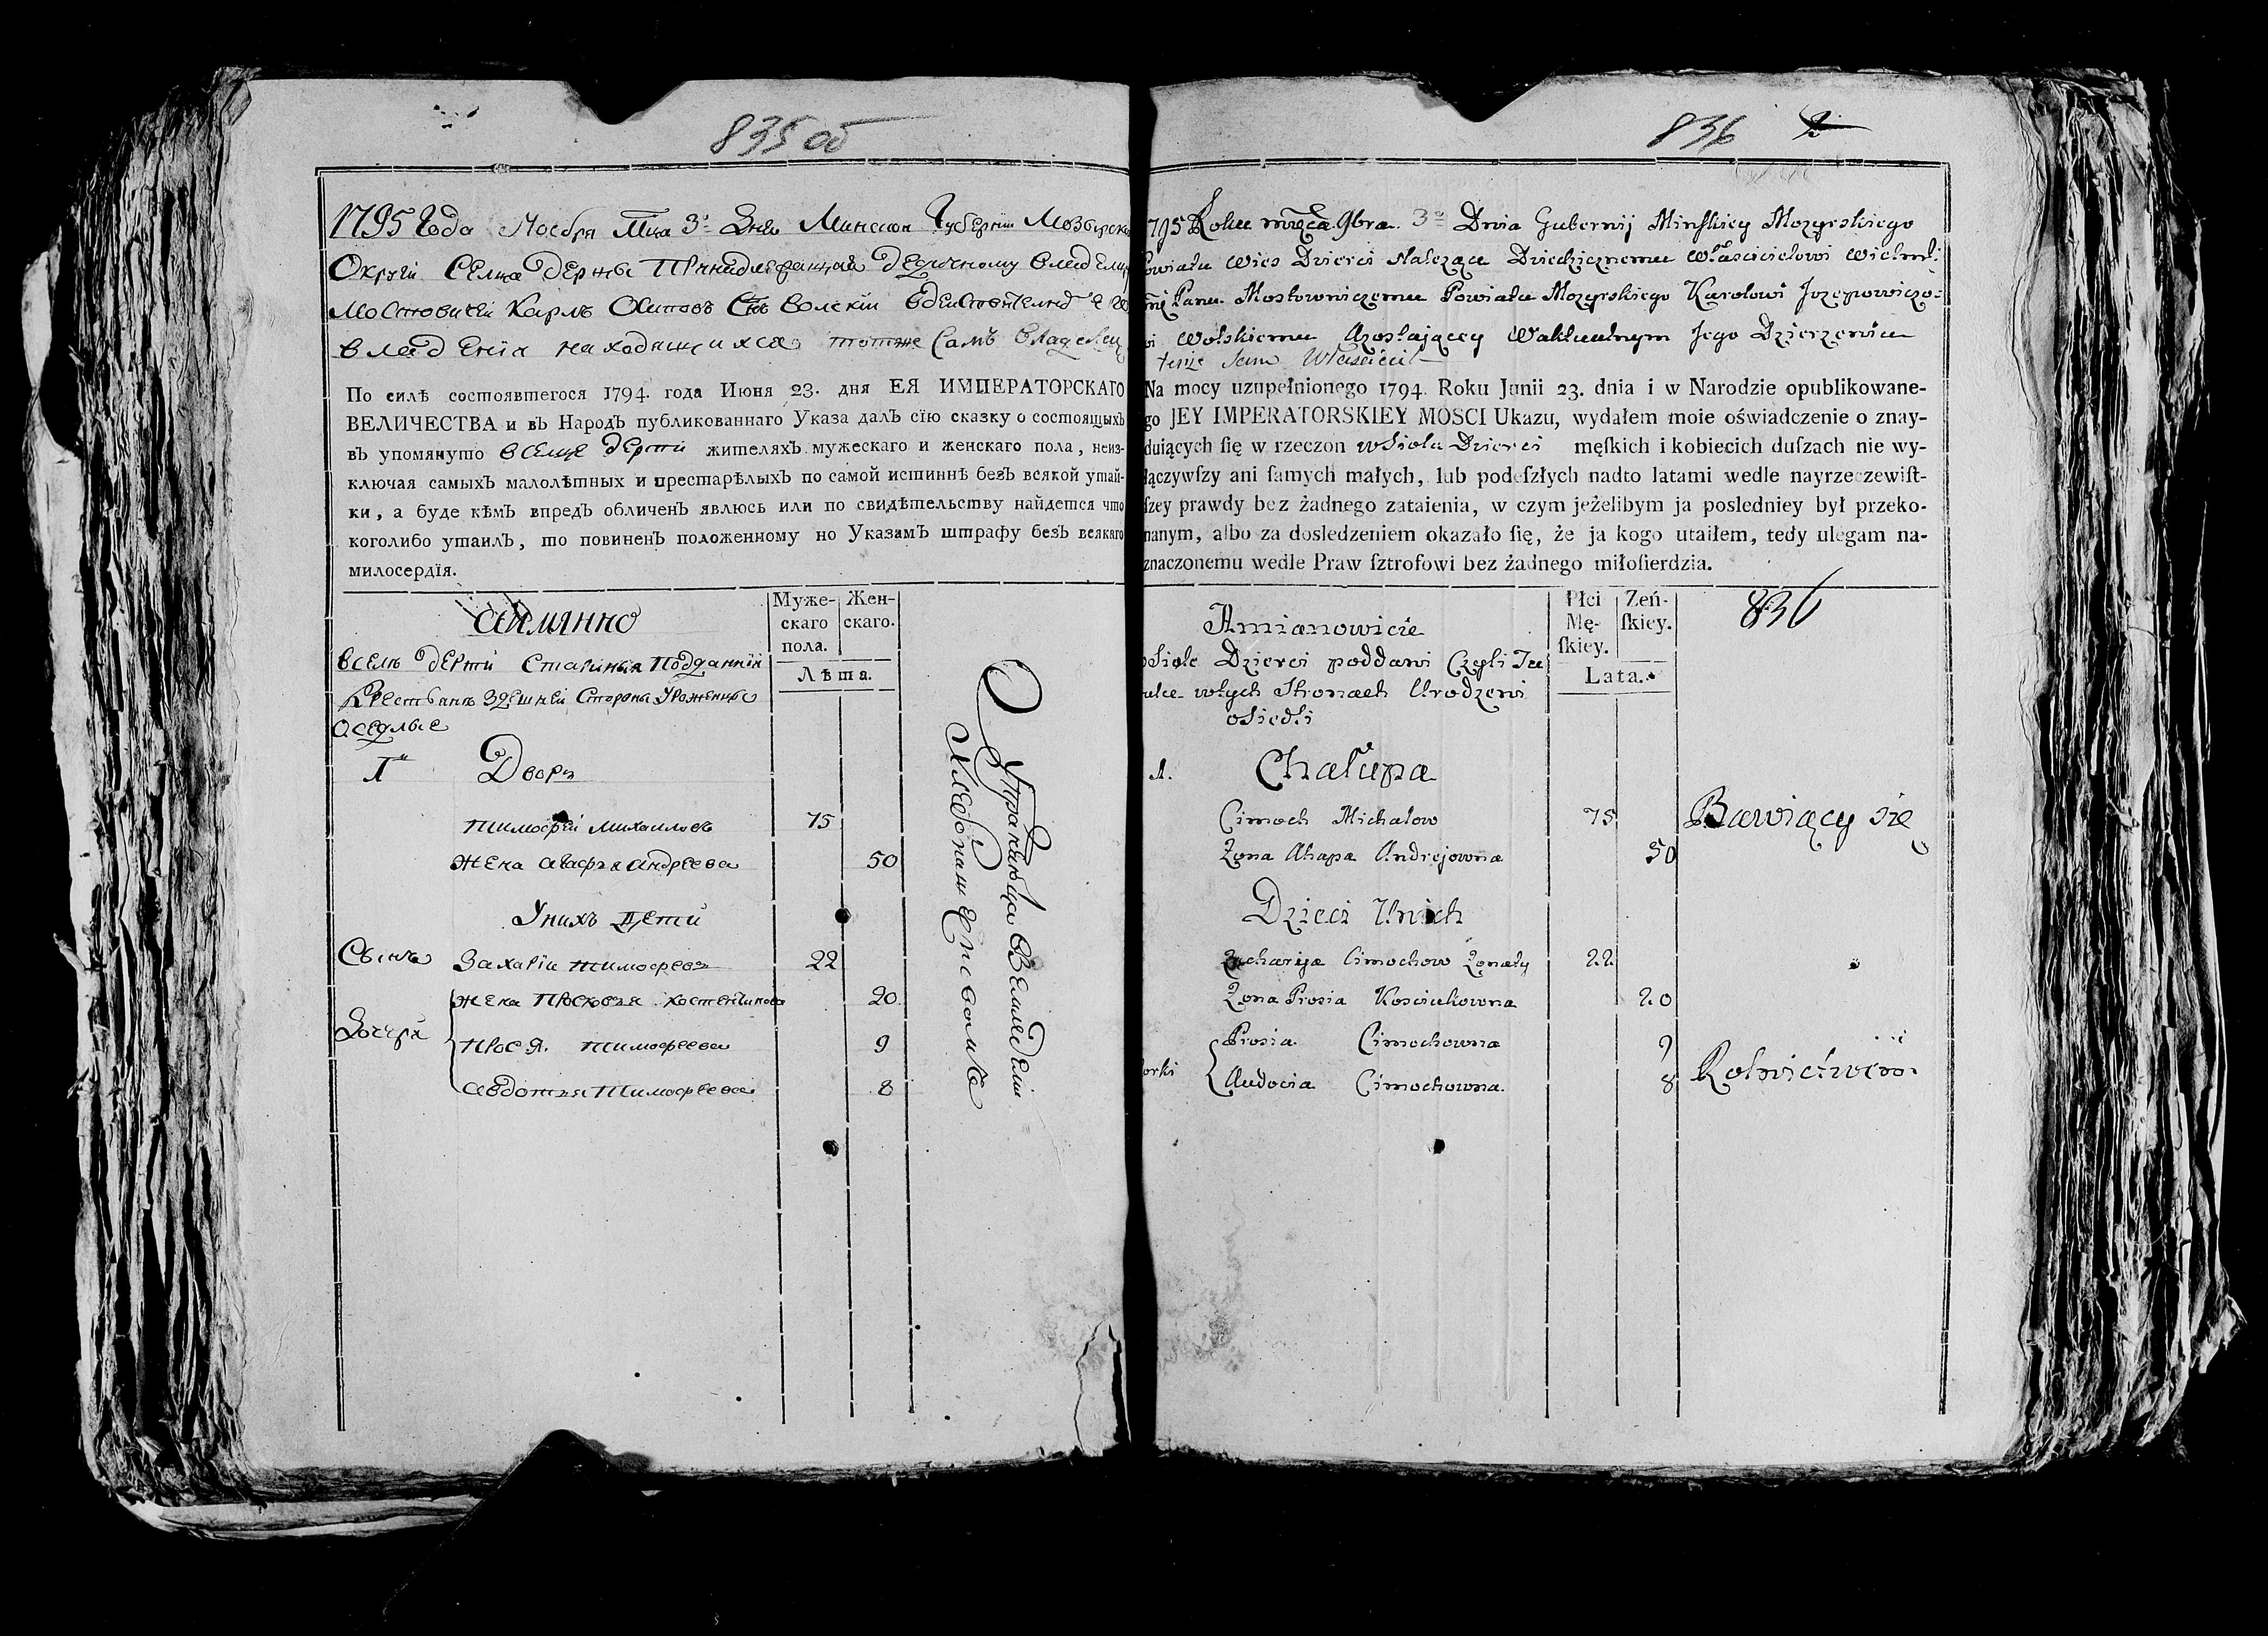 835 об
1795 Года Ноебря Мца 3: Дня Минской Губернии Мозырско
Округи Селца Держы Принадлежащая дедичному владелц
Мостовичей Карлъ Осиповъ Снъ Волскій
владения находящихся тотже Самъ Владелец
По силѣ состоявшегося 1794. года Июня 23. дня ЕЯ ИМПЕРАТОРСКАГО
ВЕЛИЧЕСТВА и въ Народъ публикованнаго Указа далъ сїю сказку о состоящыхъ
въ упомянуто вселце дерти жителяхъ мужескаго и женскаго пола, неиз-
ключая самыхъ малолѣтных и престарѣлыхъ по самой истиннѣ безъ всякой утай-
ки, а буде кѣмъ впредъ обличенъ явлюсь или по свидѣтельству найдется что
коголибо утаилъ, то повиненъ положенному по Указамъ штрафу безъ всякаго
милосердїя.
аимянно
Муже-
скаго
пола.
Жен-
скаго.
Лѣта.
вселѣ дерти Старинныя Подданніи
Крестьянъ Здешней Стороны Уроженцы
Оседлые
1й Дворъ
Тимофей Михаиловъ 75
жена Агафья Андреева 50
Унихъ Дети
Сынъ Захарiи Тимофеевъ 22
жена Просковья Костентинова 20
Дочери Прося Тимофеева 9
Авдотья Тимофеева 8
Упражняюца вземледелiи
Хлебопашенсвомъ
836 2
795 Roku mięca 9bra. 3o Dnia Gubernij Minskiey Mozyrskiego
owiatu wies Dzierci Nalezące Dziedzicznemu Włascicielowi wielm:
Panu Mostowniczemu Powiatu Mozyrskiego Karolowi Jozepowiczo=
wi Wolskiemu Zostającey Waktualnym Jego Dzierzeniu
tenże sam Własciciel
Na mocy uzupełnionego 1794. Roku Junii 23. dnia i w Narodzie opublikowane-
go JEY IMPERATORSKIEY MOSCI Ukazu, wydałem moie oświadczenie o znay-
duiących ſię w rzeczon wSiolu Dzierci męſkich i kobiecich duſzach nie wy-
łączywſzy ani ſamych małych, lub podeſzłych nadto latami wedle nayrzeczewiſt-
ſzey prawdy bez żadnego zataienia, w czym jeżelibym ja posledniey był przeko-
nanym, albo za dosledzeniem okazało ſię, że ja kogo utaiłem, tedy ulegam na-
znaczonemu wedle Praw ſztrofowi bez żadnego miłoſierdzia.
Amianowicie
Płci
Mę-
ſkiey.
Zeń-
ſkiey.
Lata.
836
Siole Dzierci poddani Czyli Je
wtych Stronach Urodzeni
osiedli
1. Chałupa
Cimoch Michałow 75
Żona Ahapa Andrejowna 50
Bawiący się
Dzieci Unich
Zacharyja Cimochow Żonaty 22
Żona Prosia Kosciukowna 20
Prosia Cimochowna 9
orki
Audocia Cimochowna. 8
Rolnictwem.